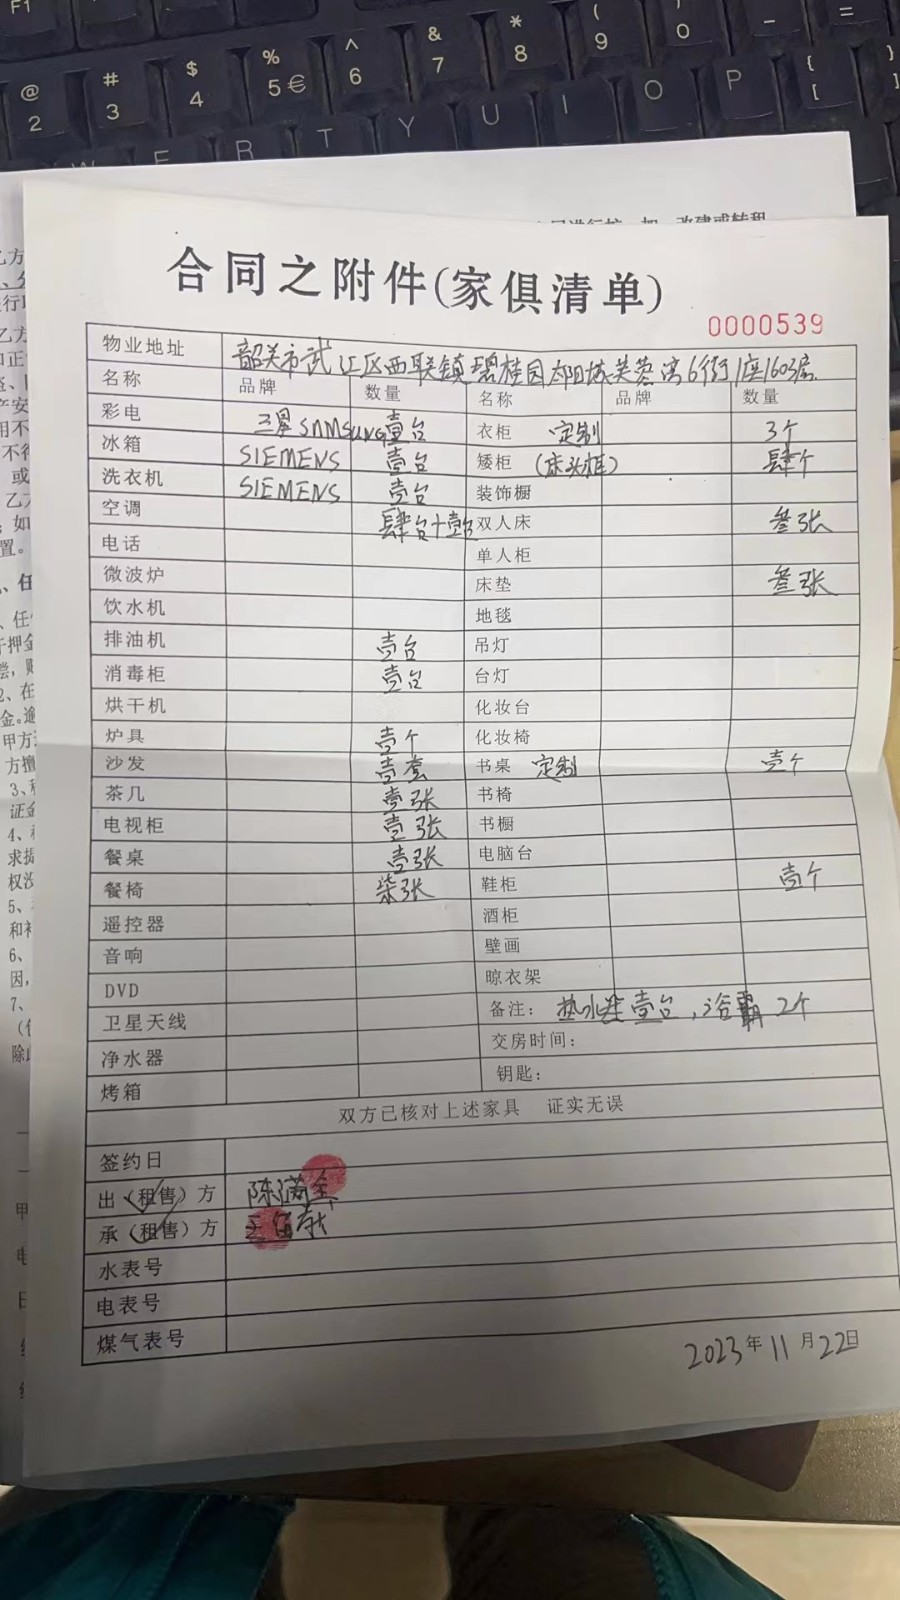 F1
@ # $ % ^ & * ( ) _ =
2 3 4 5 € 6 7 8 9 0 - {
[
W E R T Y U I O P
合同之附件(家俱清单)
0000539
物业地址 韶关市武江区西联镇碧桂园太阳城芙蓉湾6街1座1603房
名称 品牌 数量 名称 品牌 数量
彩电 三星SAMSUNG 壹台 衣柜 定制 3个
冰箱 SIEMENS 壹台 矮柜 (床头柜) 肆个
洗衣机 SIEMENS 壹台 装饰橱
空调 肆台+壹台 双人床 叁张
电话 单人柜
微波炉 床垫 叁张
饮水机 地毯
排油机 壹台 吊灯
消毒柜 壹台 台灯
烘干机 化妆台
炉具 壹个 化妆椅
沙发 壹套 书桌 定制 壹个
茶几 壹张 书椅
电视柜 壹张 书橱
餐桌 壹张 电脑台
餐椅 柒张 鞋柜 壹个
遥控器 酒柜
音响 壁画
DVD 晾衣架
卫星天线 备注: 热水器壹台,浴霸2个
净水器 交房时间:
烤箱 钥匙:
双方已核对上述家具 证实无误
签约日
出(租售)方 陈满全
承(租售)方
水表号
电表号
煤气表号
2023年11月22日